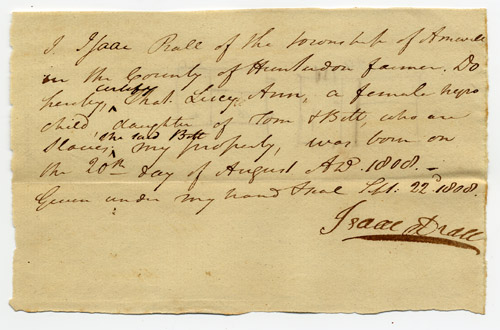 I Isaac Prall of the township of Amwell
in the County of Hunterdon farmer. Do
hereby certify that Lucy Ann, a female negro
child daughter of Tom & Bett, who are
slaves, the said Bett my property, was born on
the 20th day of August AD. 1808. –
Given under my hand & seal Sept. 22d 1808.
Isaac Prall